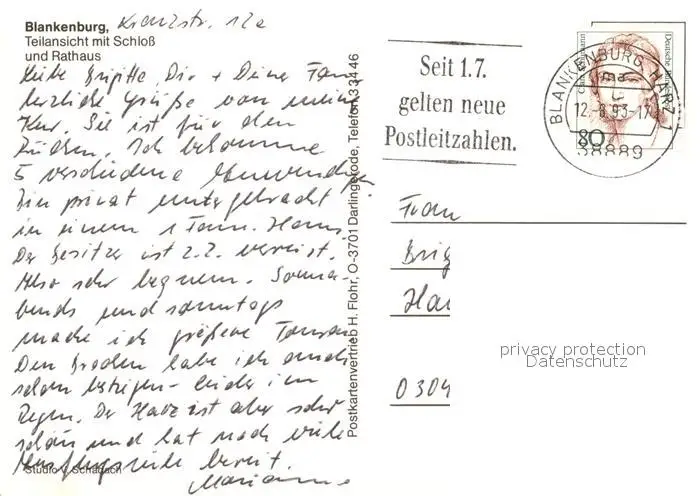 Blankenburg, Kreuzstr. 12a
Teilansicht mit Schloß
und Rathaus
Liebe Brigitte, Dir + Deiner Fam
herzliche Grüße von meiner
Kur. Sie ist für den
Rücken. Ich bekomme
5 verschiedene Anwendungen
Bin privat untergebracht
in einem 1 Fam. Haus.
Der Besitzer ist z.Z. verreist.
Also sehr bequem. Sonna-
bends und sonntags
mache ich größere Touren
Den Brocken habe ich auch
schon bestiegen - leider im
Regen. Der Harz ist aber sehr
schön und hat noch viele
Ausflugsziele bereit.
Marianne
Studio V. Schadach
Postkartenvertrieb H. Flohr, O-3701 Darlingerode, Telefon 33446
Seit 1.7.
gelten neue
Postleitzahlen.
BLANKENBURG, HARZ 1
12.-8.93-17
38889
80
Deutsche Bundes
Frau
Brig
Han
O 304
privacy protection
Datenschutz